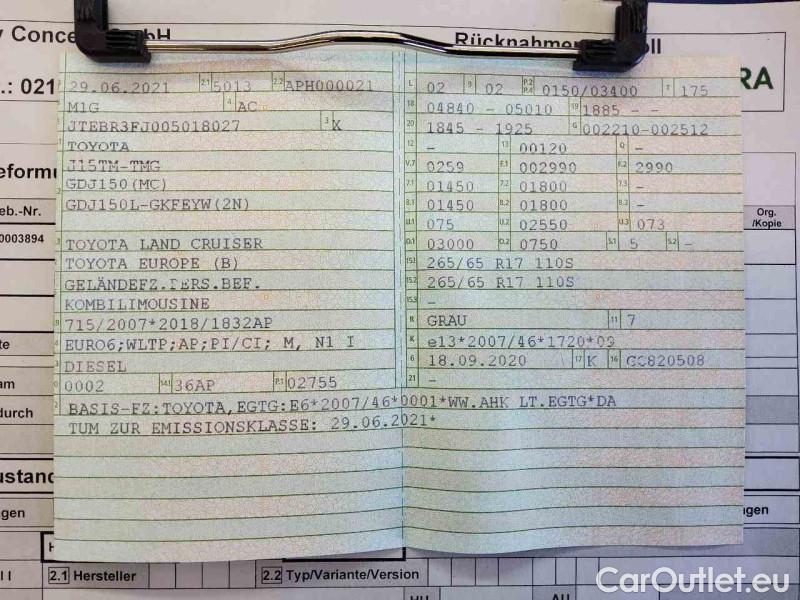 y Conce GmbH
Rücknahme oll
.: 021
RA
29.06.2021 2.1 5013 2.2 APH000021
M1G 4 AC
JTEBR3FJ005018027 3 K
TOYOTA
J15TM-TMG
GDJ150(MC)
GDJ150L-GKFEYW(2N)
TOYOTA LAND CRUISER
TOYOTA EUROPE (B)
GELÄNDEFZ.PERS.BEF.
KOMBILIMOUSINE
715/2007*2018/1832AP
EURO6;WLTP;AP;PI/CI; M, N1 I
DIESEL
0002 14.1 36AP P.1 02755
BASIS-FZ:TOYOTA,EGTG:E6*2007/46*0001*WW.AHK LT.EGTG*DA
TUM ZUR EMISSIONSKLASSE: 29.06.2021*
L 02 9 02 P.2 P.4 0150/03400 T 175
18 04840 - 05010 19 1885 - -
20 1845 - 1925 G 002210-002512
12 - 13 00120 Q -
V.7 0259 F.1 002990 F.2 2990
7.1 01450 7.2 01800 7.3 -
8.1 01450 8.2 01800 8.3 -
U.1 075 U.2 02550 U.3 073
O.1 03000 O.2 0750 S.1 5 S.2 -
15.1 265/65 R17 110S
15.2 265/65 R17 110S
15.3 -
R GRAU 11 7
K e13*2007/46*1720*09
6 18.09.2020 17 K 16 GC820508
21 -
eformu
eb.-Nr.
0003894
Org.
/Kopie
te
am
durch
ustand
gen
ngen
2.1 Hersteller
2.2 Typ/Variante/Version
HU
AU
CarOutlet.eu